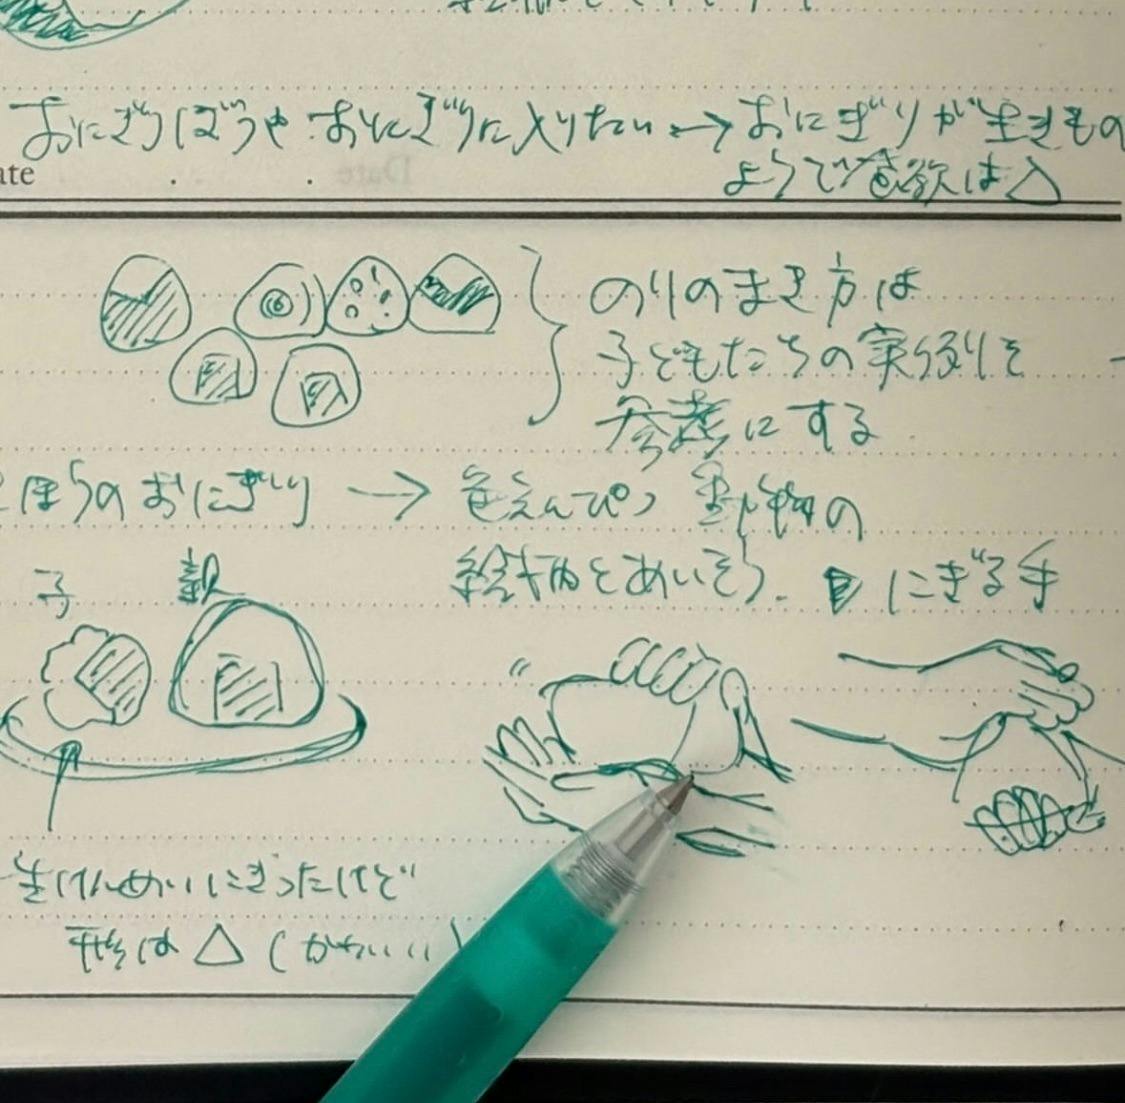 おにぎりぼうや おにぎりに入りたい → おにぎりが生きもの
ate
ようで食欲は△
のりのまき方は
子どもたちの実例を
参考にする
ほうのおにぎり → 色えんぴつ 動物の
絵柄とあいそう. にぎる手
子 親
生けんめいにぎったけど
形は△(かわいい)